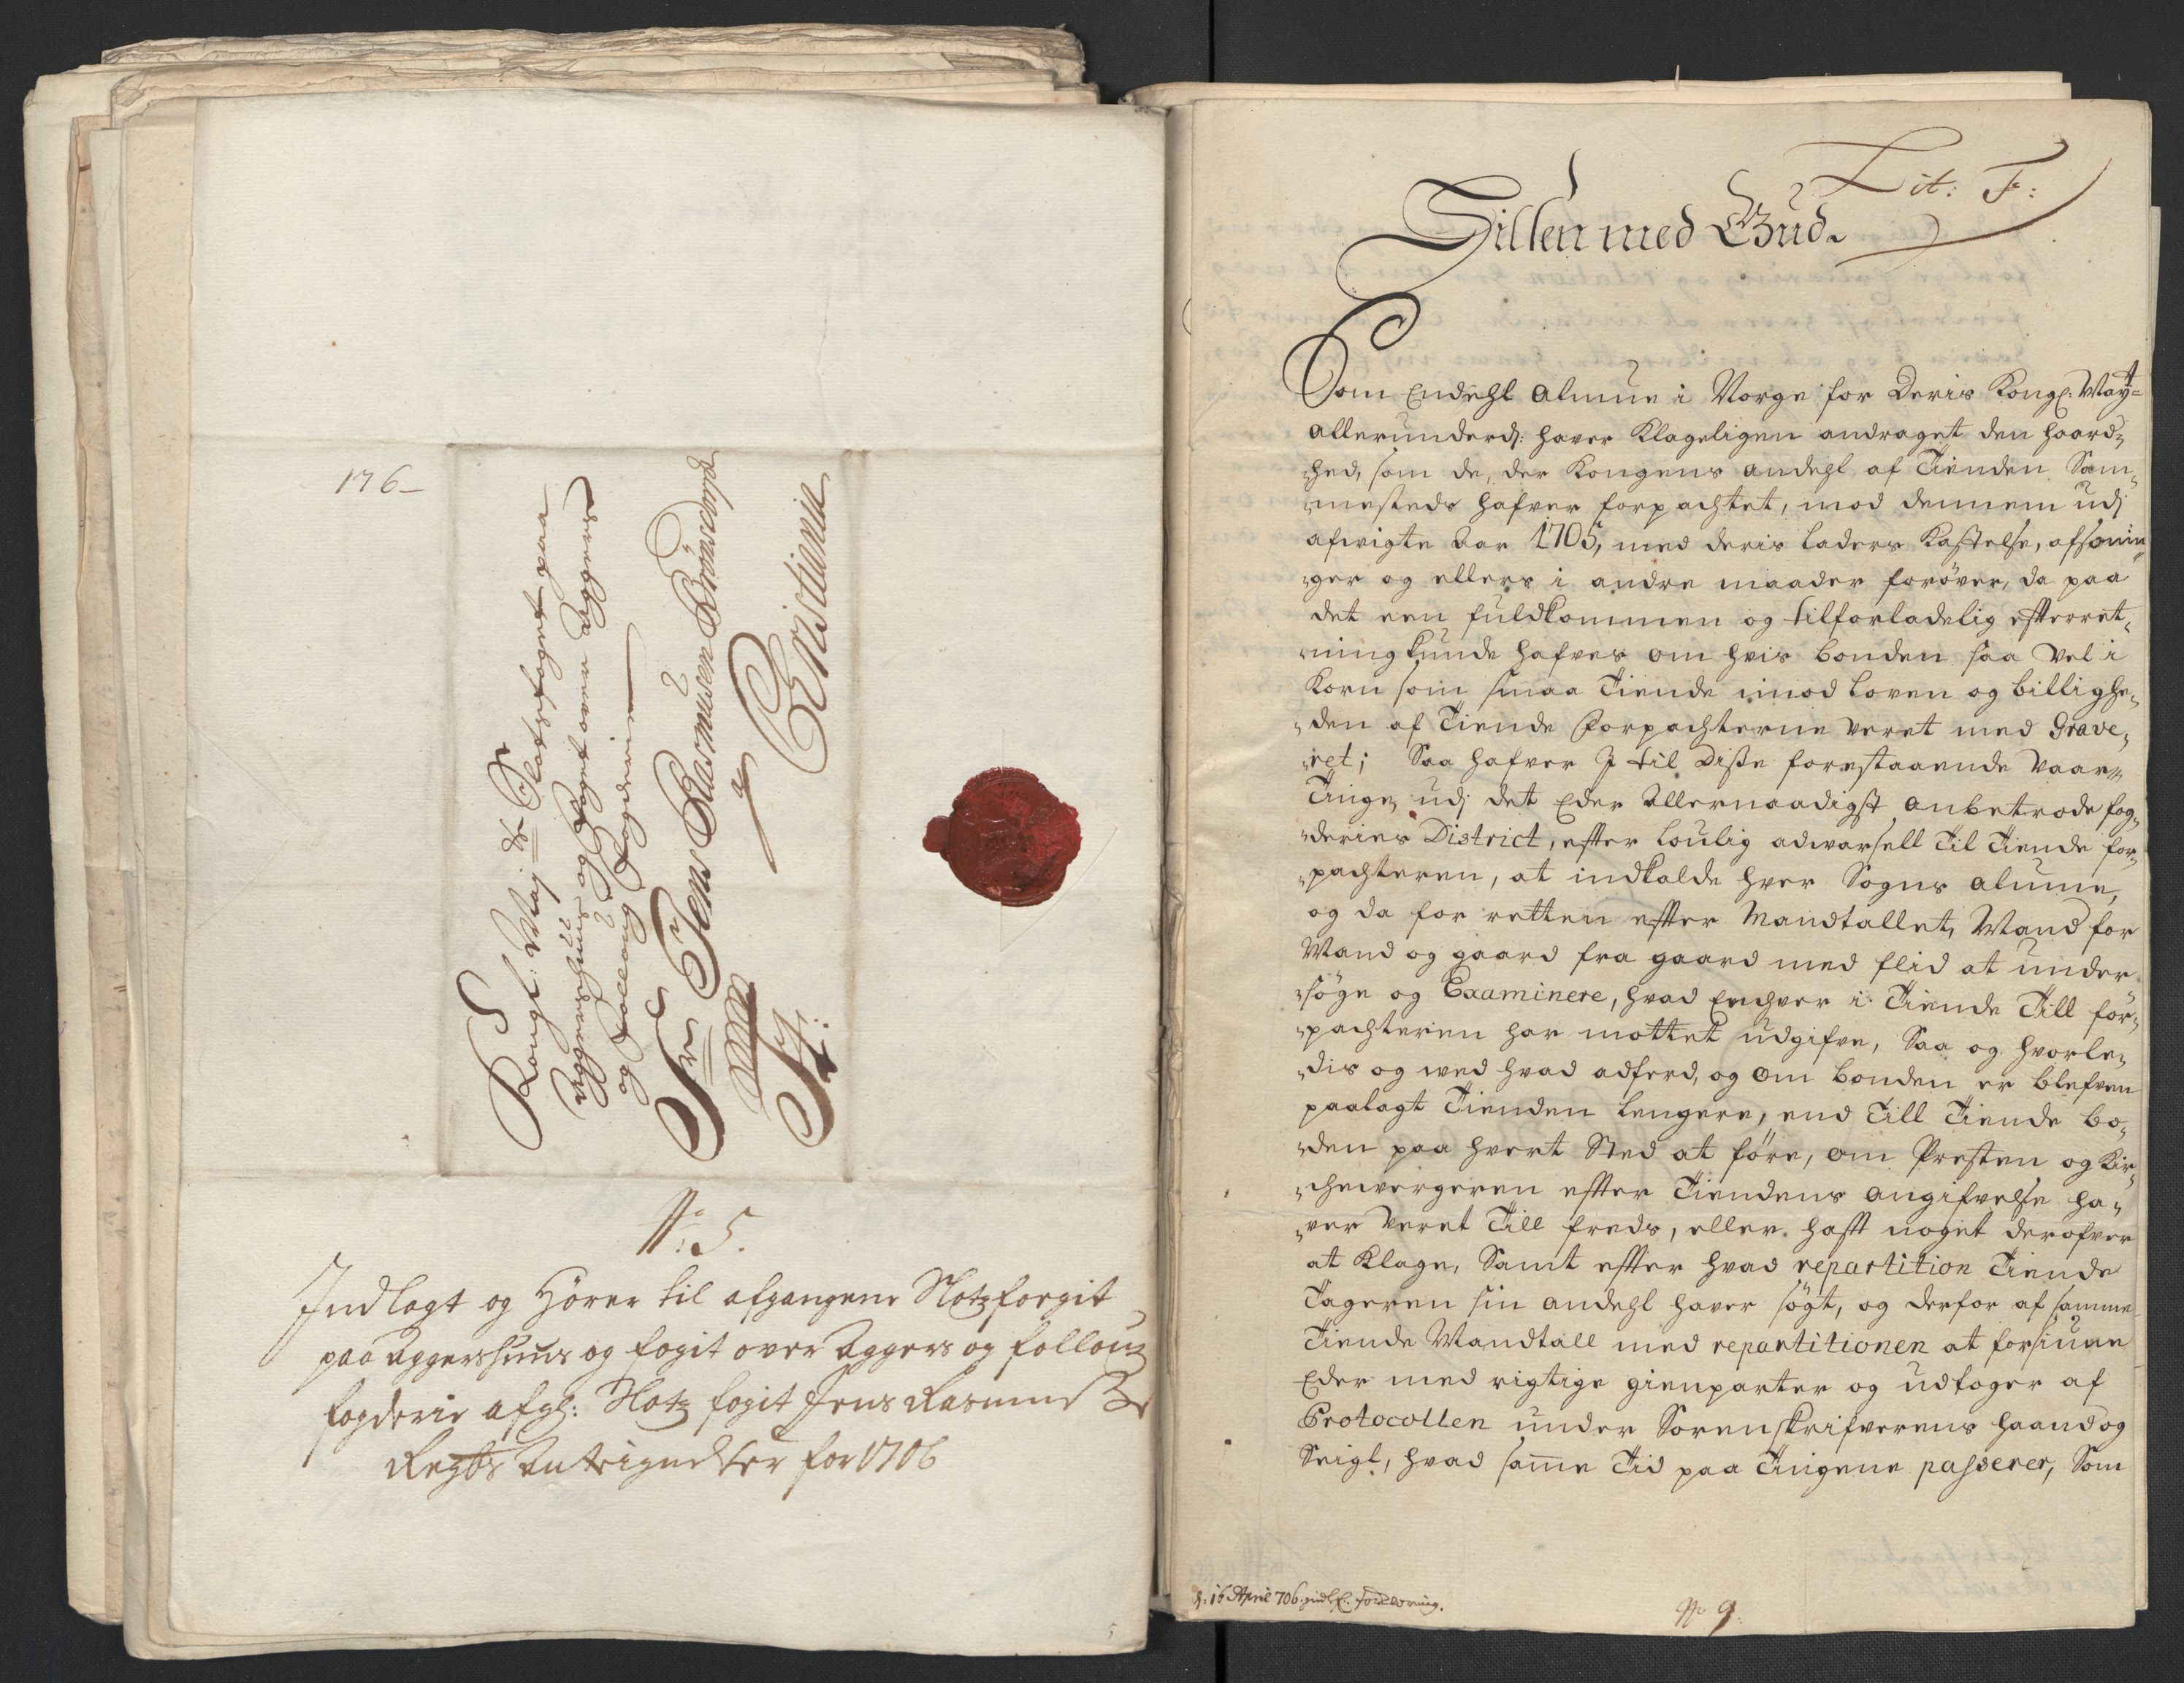 176_
Kongl: Maj:ts Slotzfoget paa
Aggershuus og Foget over Aggers
og Follous Fogderier
Sr Jens Rasmusen Brönsdorph
Christiania
No: 5.
Indlagt og Hörer til afgangene Slotzfogit
paa Aggershuus og fogit over Aggers og follouz
fogderie afgl: Slotz fogit Jens Rasmus
Regbs Anteignelser for 1706
5
Lit: F:
Hilsen med Gud.
Som Endehl almue i Norge for Deris Kongl: May:t
allerunderd: haver Klageligen andraget den haard¬
¬hed, som de, der Kongens andehl af Tienden Sam¬
¬mesteds hafver forpachtet, mod dennem udj
afvigte Aar 1705, med deris laders Kastelse, afsonin
¬ger og ellers i andre maader foröver, da paa
det een fuldkommen og tilforladelig efterret¬
¬ning kunde hafves om hvis bonden saa vel i
Korn som smaa Tiende imod loven og billighe¬
¬den af Tiende Forpachterne veret med Grave¬
¬ret; Saa hafver I til Disse forestaaende Vaar¬
Tinge, udj det Eder Allernaadigst anbetrode fog¬
¬deries District, efter loulig advarsell Til Tiende for¬
¬pachteren, at indkalde hver Sogns almue,
og da for retten effter Mandtallet, Mand for
Mand og gaard fra gaard med flid at under
¬söge og Examinere, hvad Enchver i Tiende Till for¬
¬pachteren har mottet udgifve, Saa og hvorle¬
¬dis og med hvad adferd, og om bonden er blefven
paalagt Tienden lengere, end Till Tiende bo¬
¬den paa hvert Sted at före, om Presten og Kir¬
¬chevergeren effter Tiendens angifvelse ha¬
¬ver veret Till freds, eller hafft noget derofver
at Klage, Samt effter hvad repartition Tiende
Tageren sin andehl haver sögt, og derfor af samme
Tiende Mandtall med repartitionen at forsiune
Eder med rigtige gienparter og udtoger af
Protocollen under Sorenskrifverens haand og
Seigl, hvad samme Tid paa Tingene passerer, Som
d: 16 April 706. indl. forddring.
No 9.